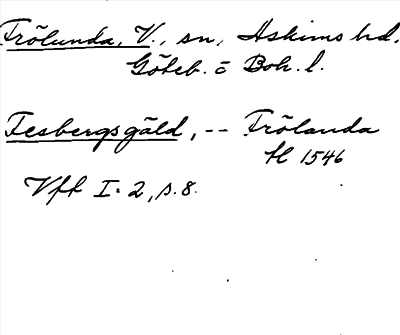 Frölunda, V., sn, Askims hd.
Göteb. o Boh. l.
Fesbergsgäld, -- Frölanda
H 1546
Vff I: 2, s. 8.